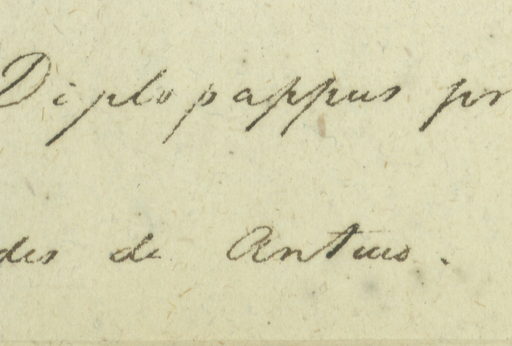 Diplopappus pr
des de Antuco.